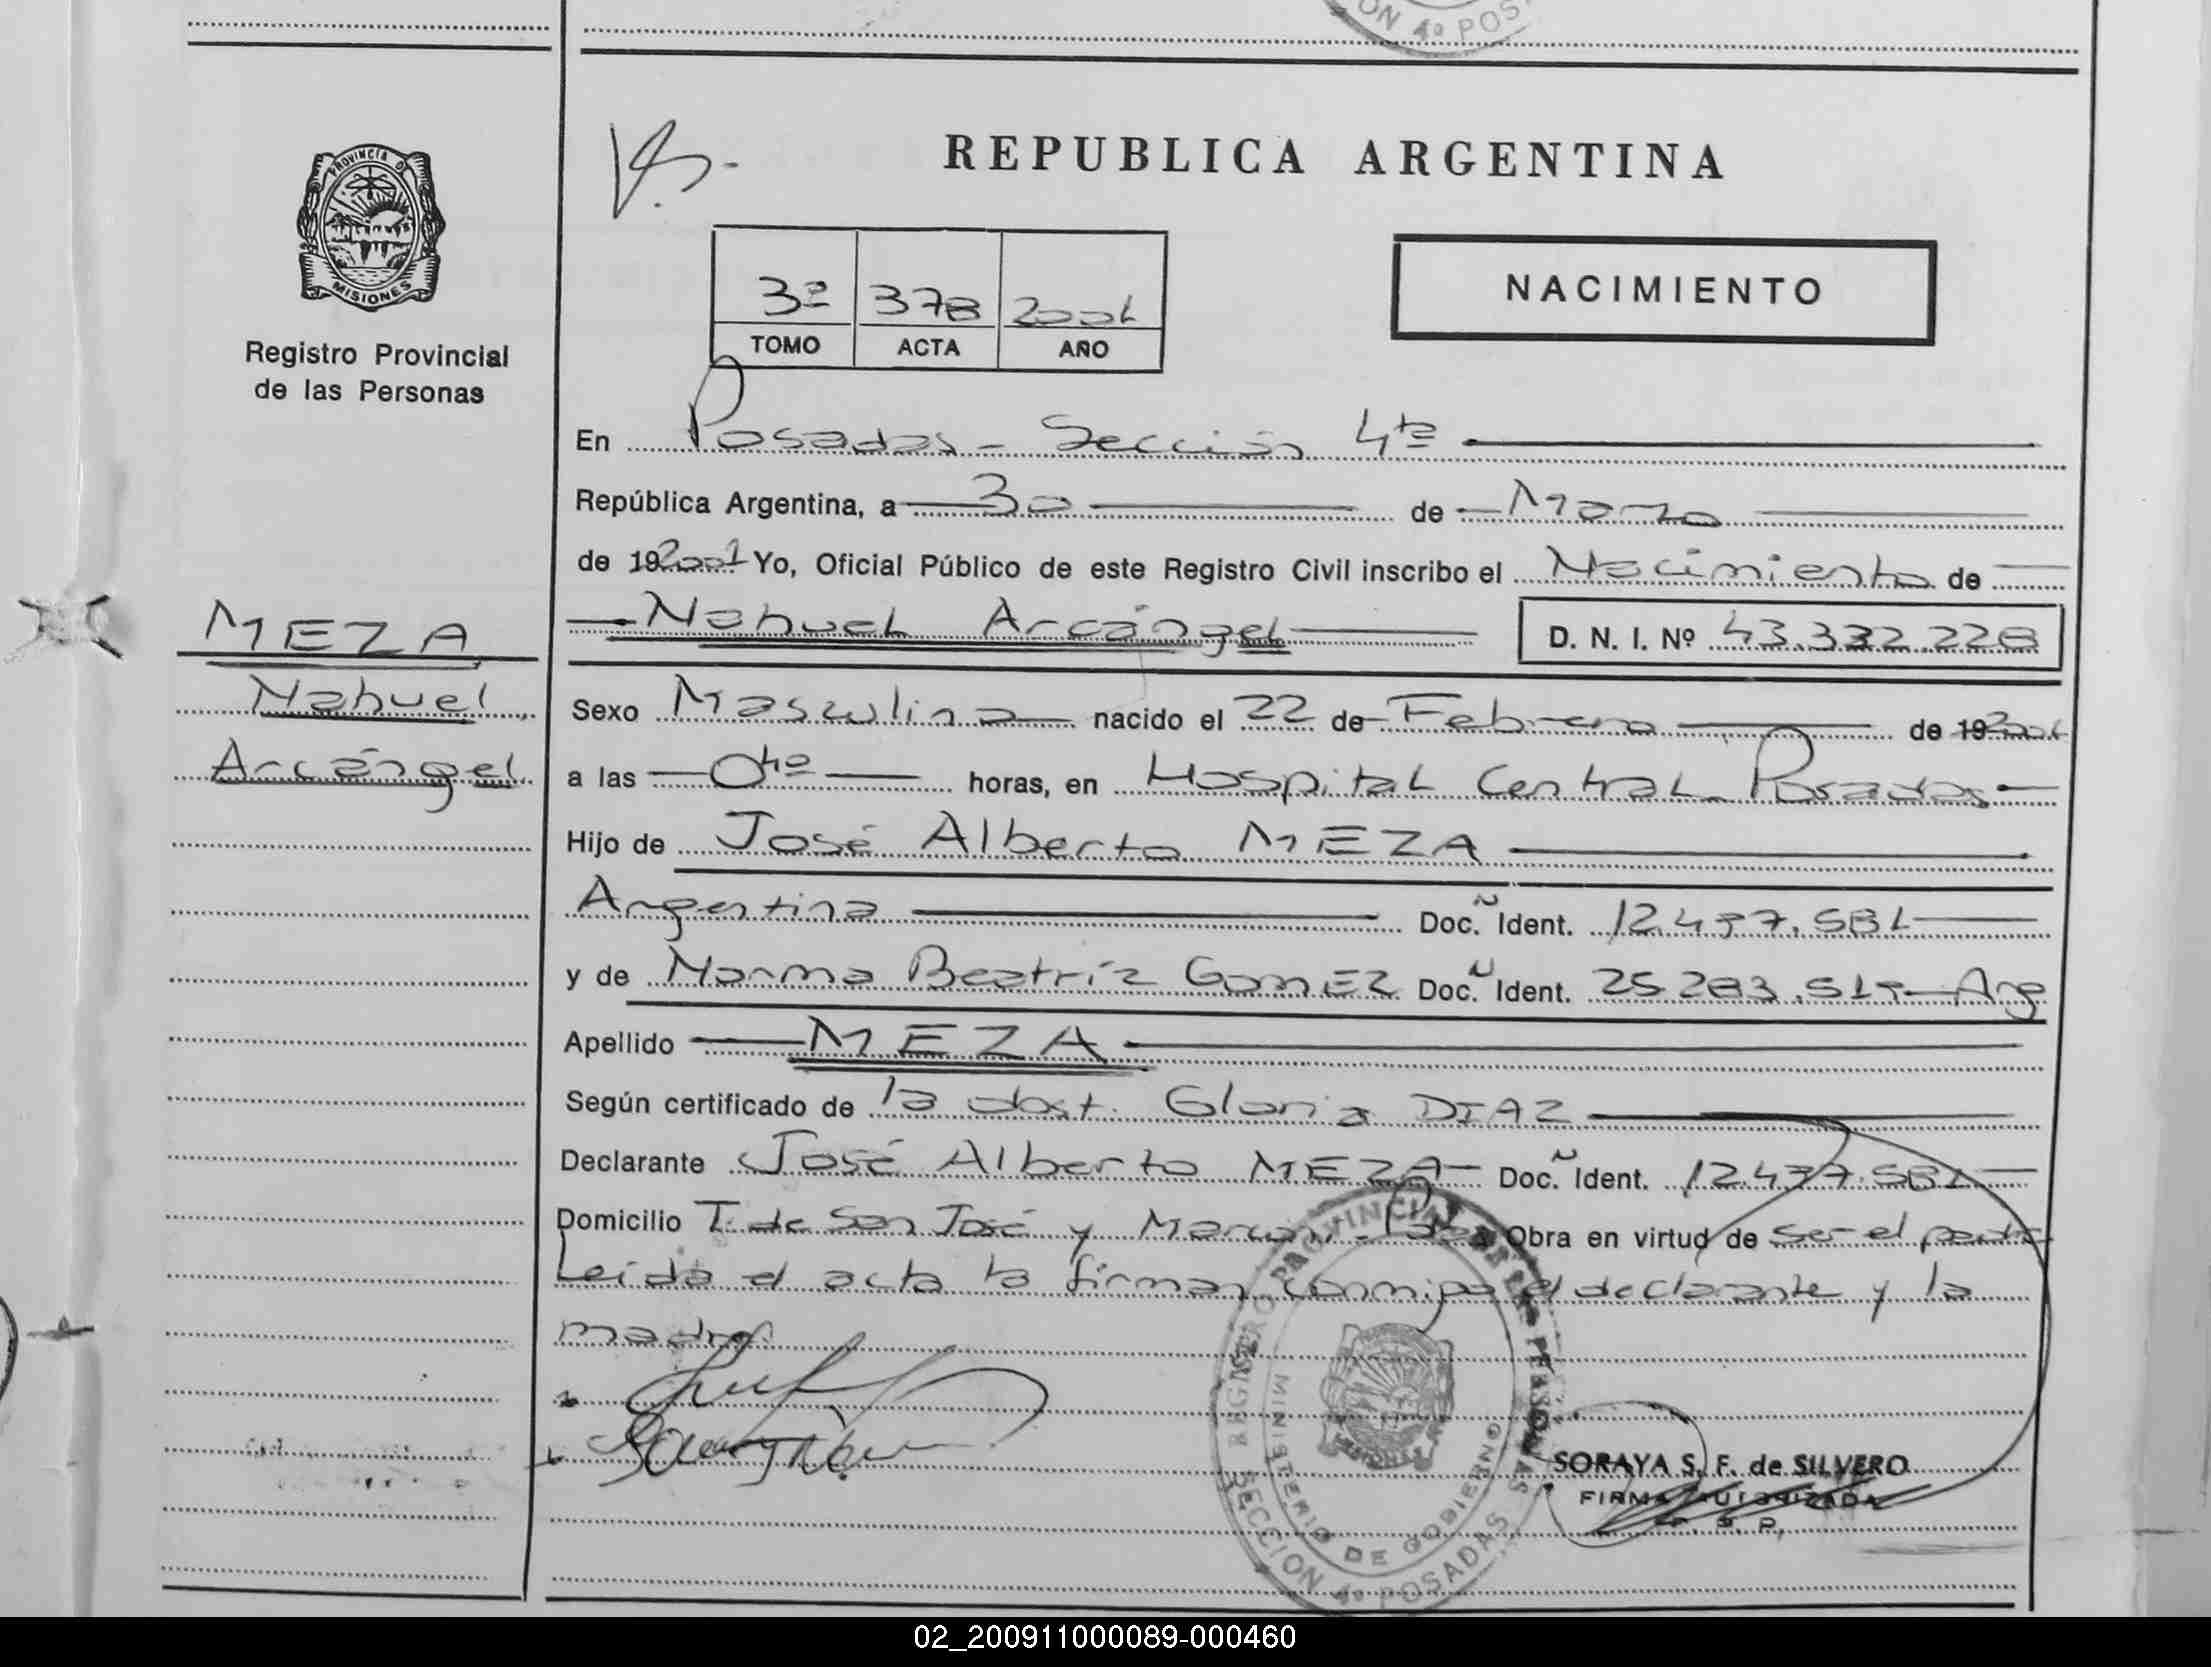 ON 4º POS
PROVINCIA D
MISIONES
Registro Provincial
de las Personas
MEZA
Nahuel
Arcángel
REPUBLICA ARGENTINA
3º 378 2001
TOMO ACTA AÑO
NACIMIENTO
En Posadas - Sección 4ta
República Argentina, a 30 de Marzo
de 19 2001 Yo, Oficial Público de este Registro Civil inscribo el Nacimiento de
Nahuel Arcángel D. N. I. Nº 43.332.228
Sexo Masculino nacido el 22 de Febrero de 19 2001
a las 0 horas, en Hospital Central Posadas
Hijo de José Alberto MEZA
Argentina Doc. Ident. 12.437.581
y de Norma Beatríz GOMEZ Doc. Ident. 25.283.515 - Arg
Apellido MEZA
Según certificado de la obst. Gloria DIAZ
Declarante José Alberto MEZA Doc. Ident. 12.437.581
Domicilio T. de San José y Marconi - Pdas Obra en virtud de ser el padre
Leída el acta la firman conmigo el declarante y la
madre.
REGISTRO PROVINCIAL DE LAS PERSONAS
MINISTERIO DE GOBIERNO
SECCION 4º POSADAS
SORAYA S. F. de SILVERO
FIRMA AUTORIZADA
R. P.
02_200911000089-000460